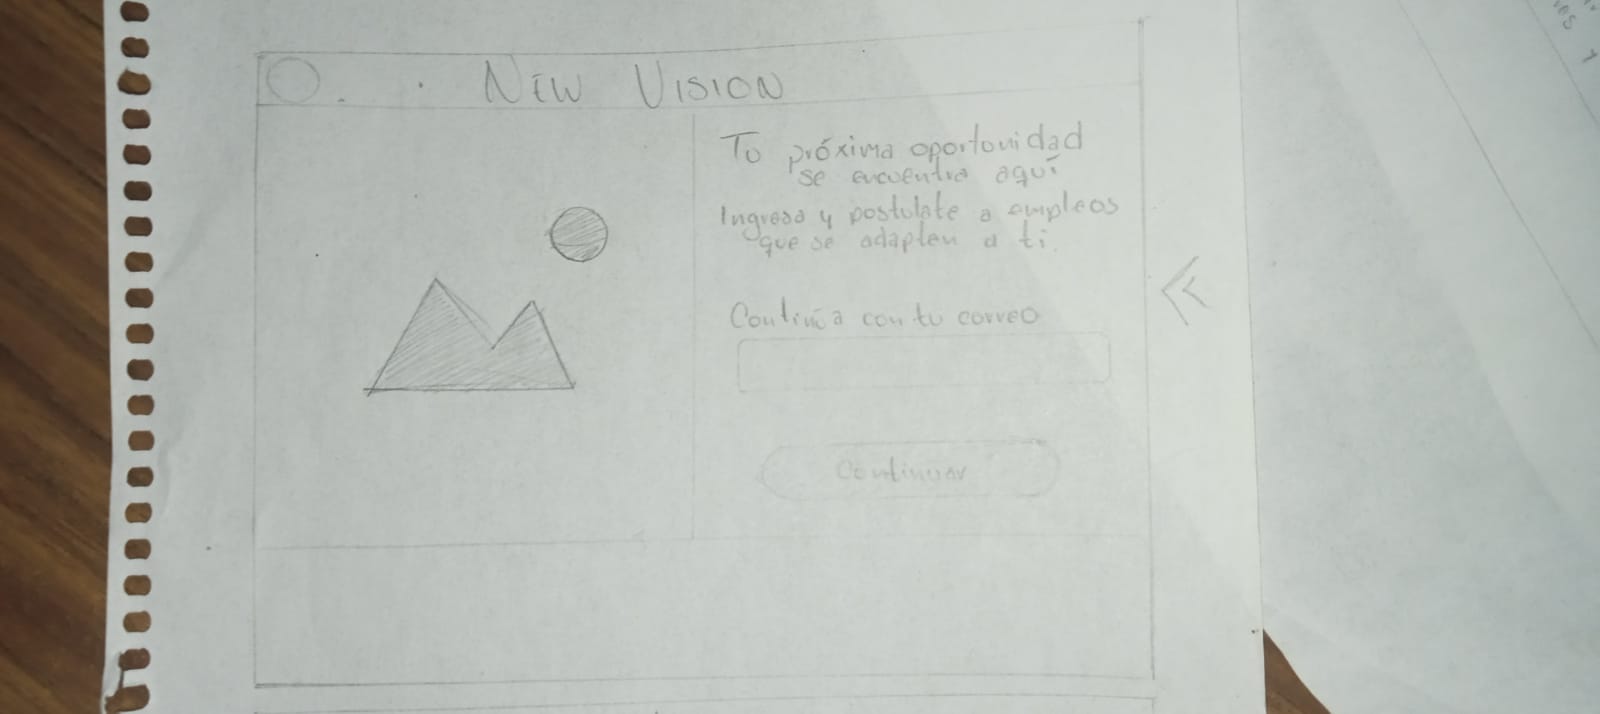 New Vision
Tu próxima oportunidad
se encuentra aquí
Ingresa y postulate a empleos
que se adapten a ti.
Continúa con tu correo
Continuar